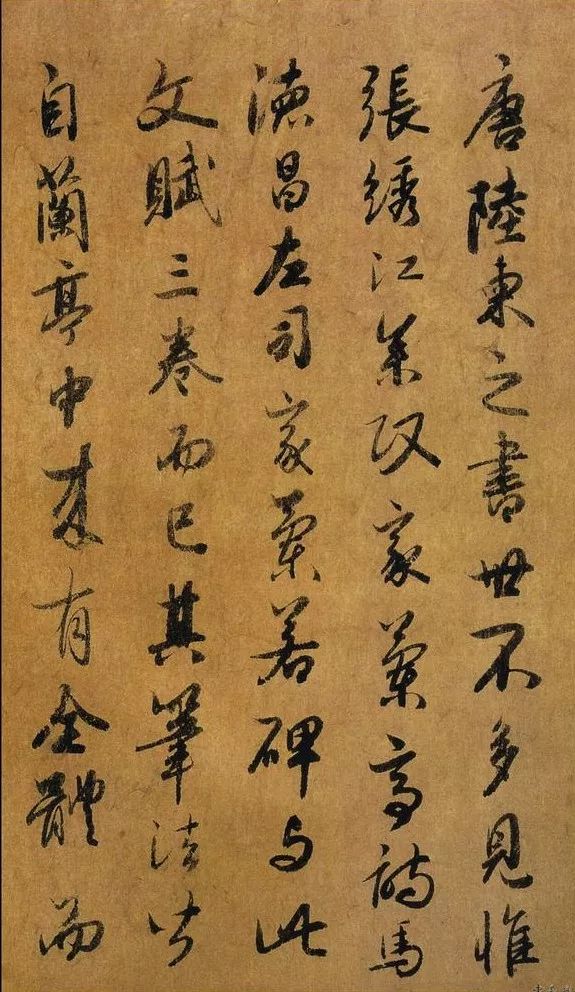 唐陸柬之書世不多見惟
張綉江叅政家蘭亭詩馬
德昌左司家蘭若碑与此
文賦三卷而已其筆法皆
自蘭亭中来有全體而